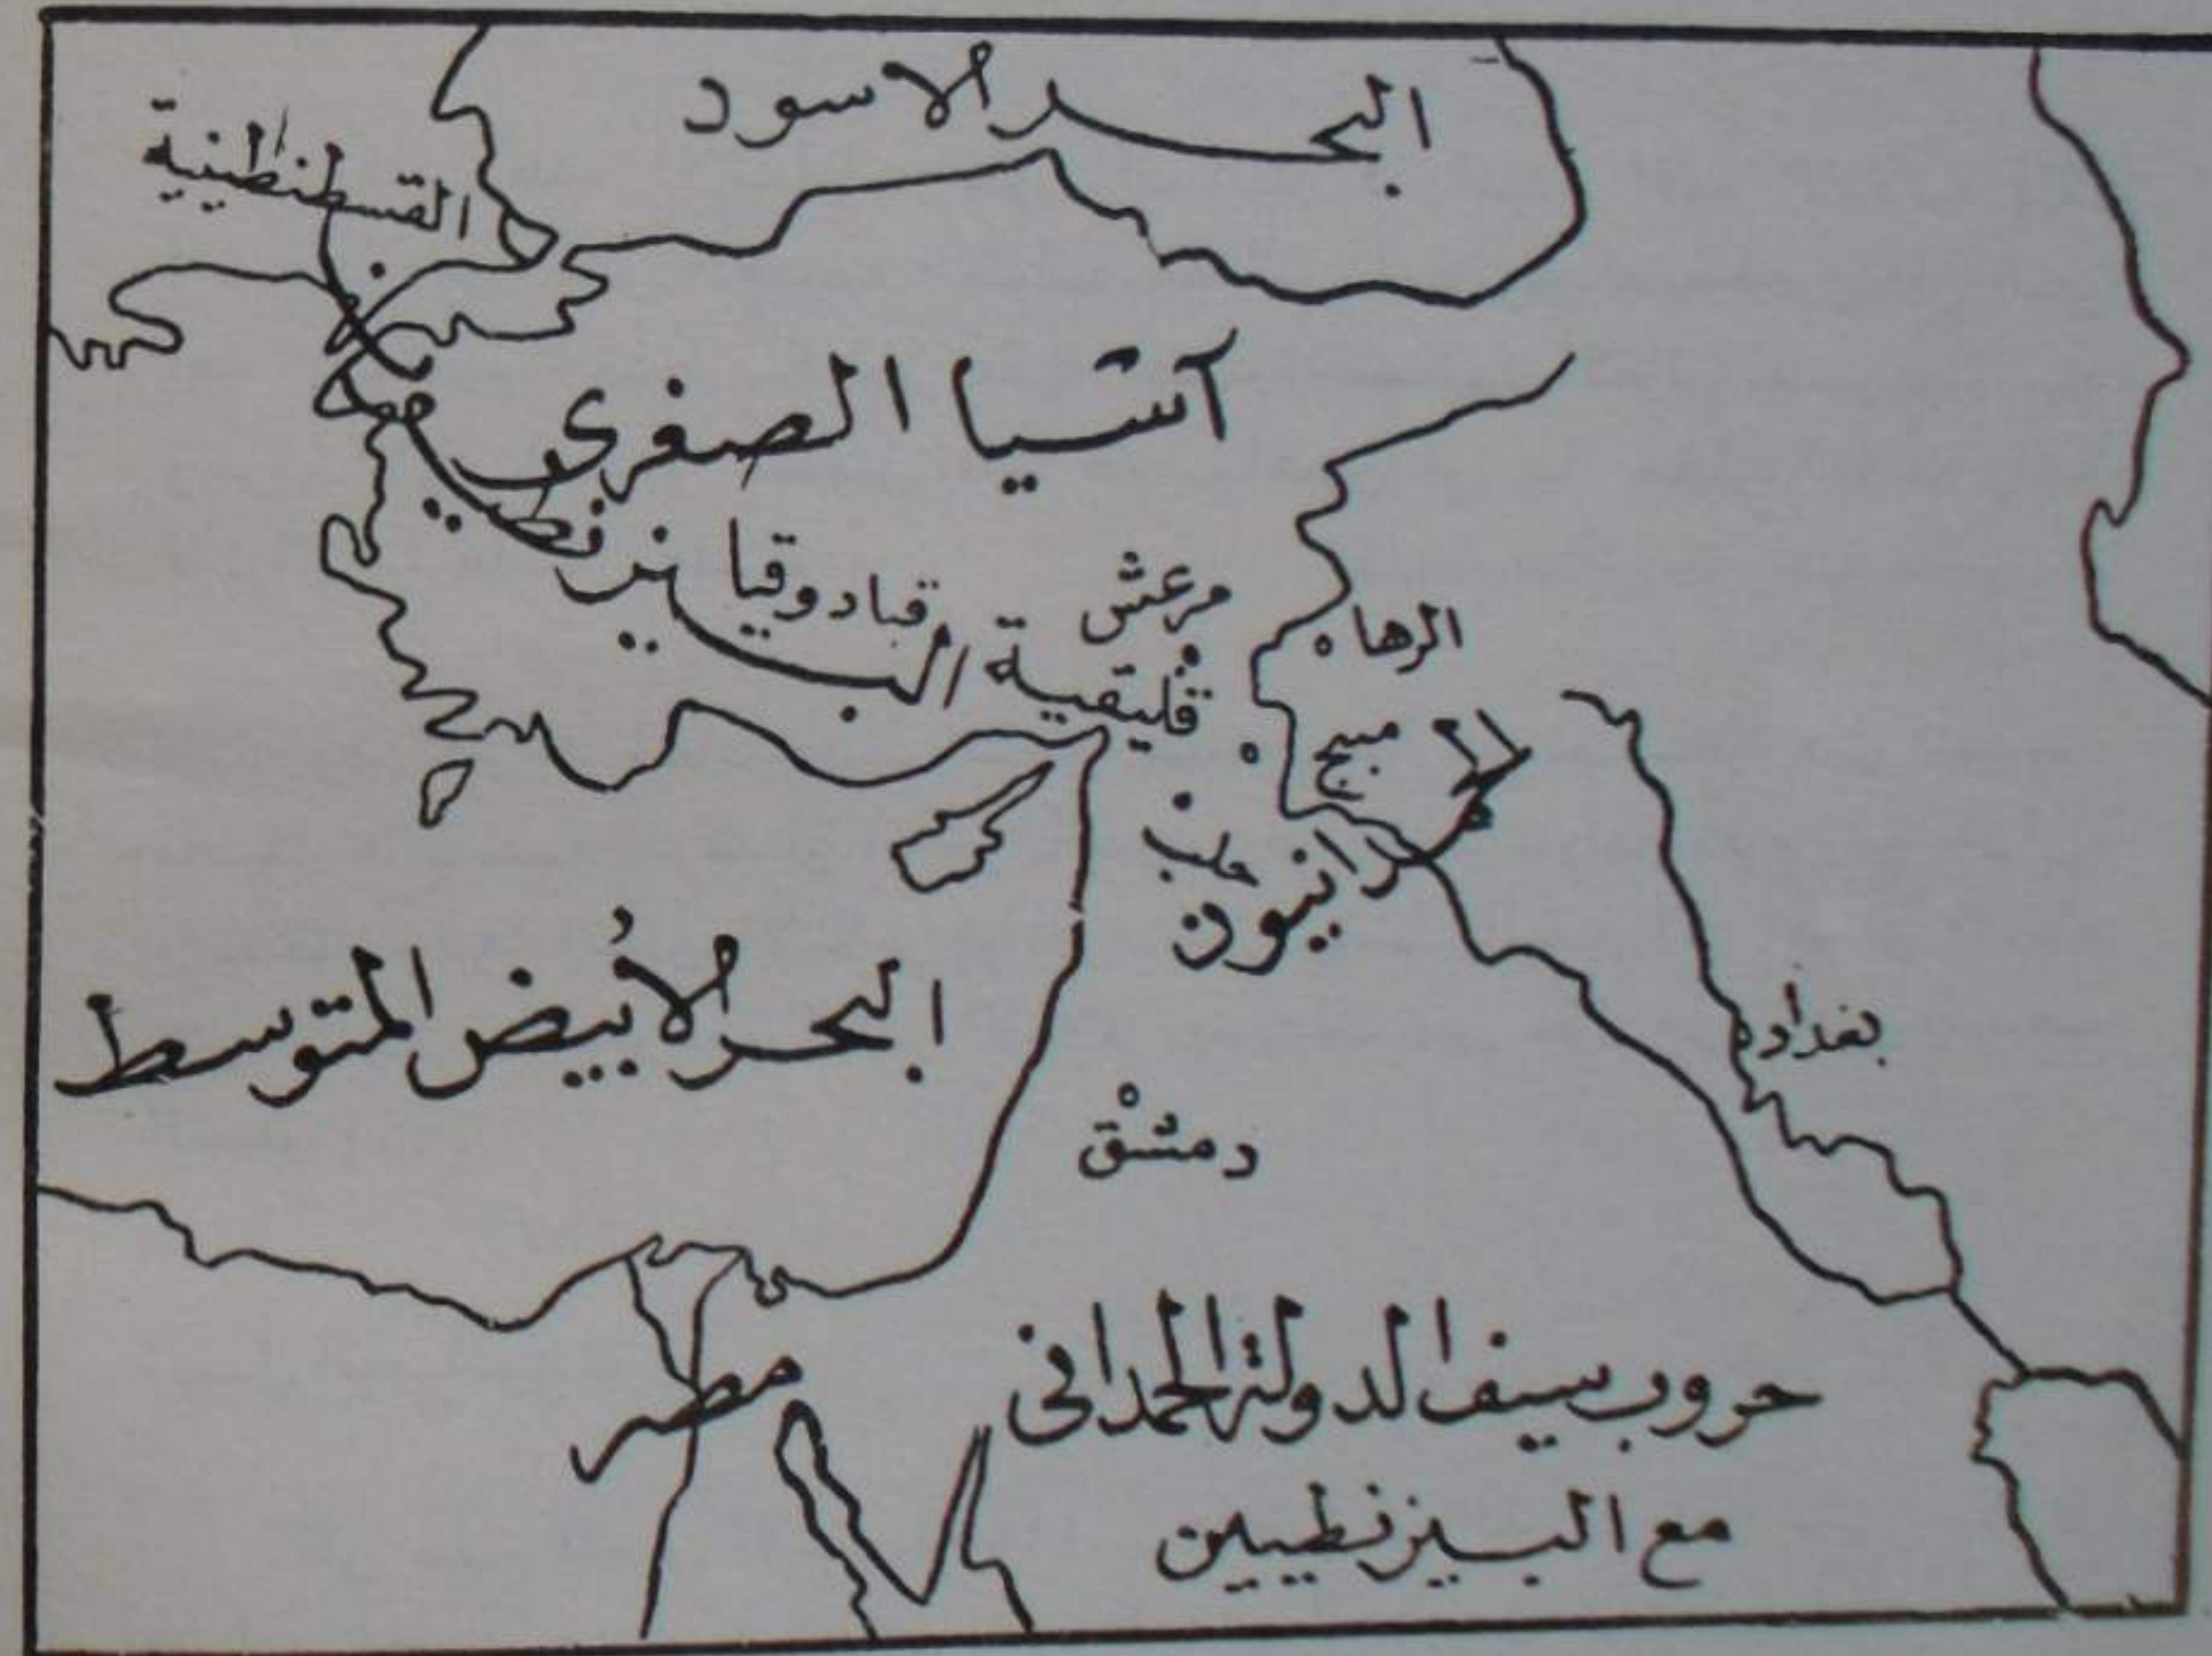 البحر الاسود
القسطنطينية
آسيا الصغرى
البيزنطيين
قبادوقيا
مرعش
الرها
قليقية
منبج
الحمدانيون
حلب
البحر الأبيض المتوسط
بغداد
دمشق
مصر
حروب سيف الدولة الحمدانى
مع البيزنطيين